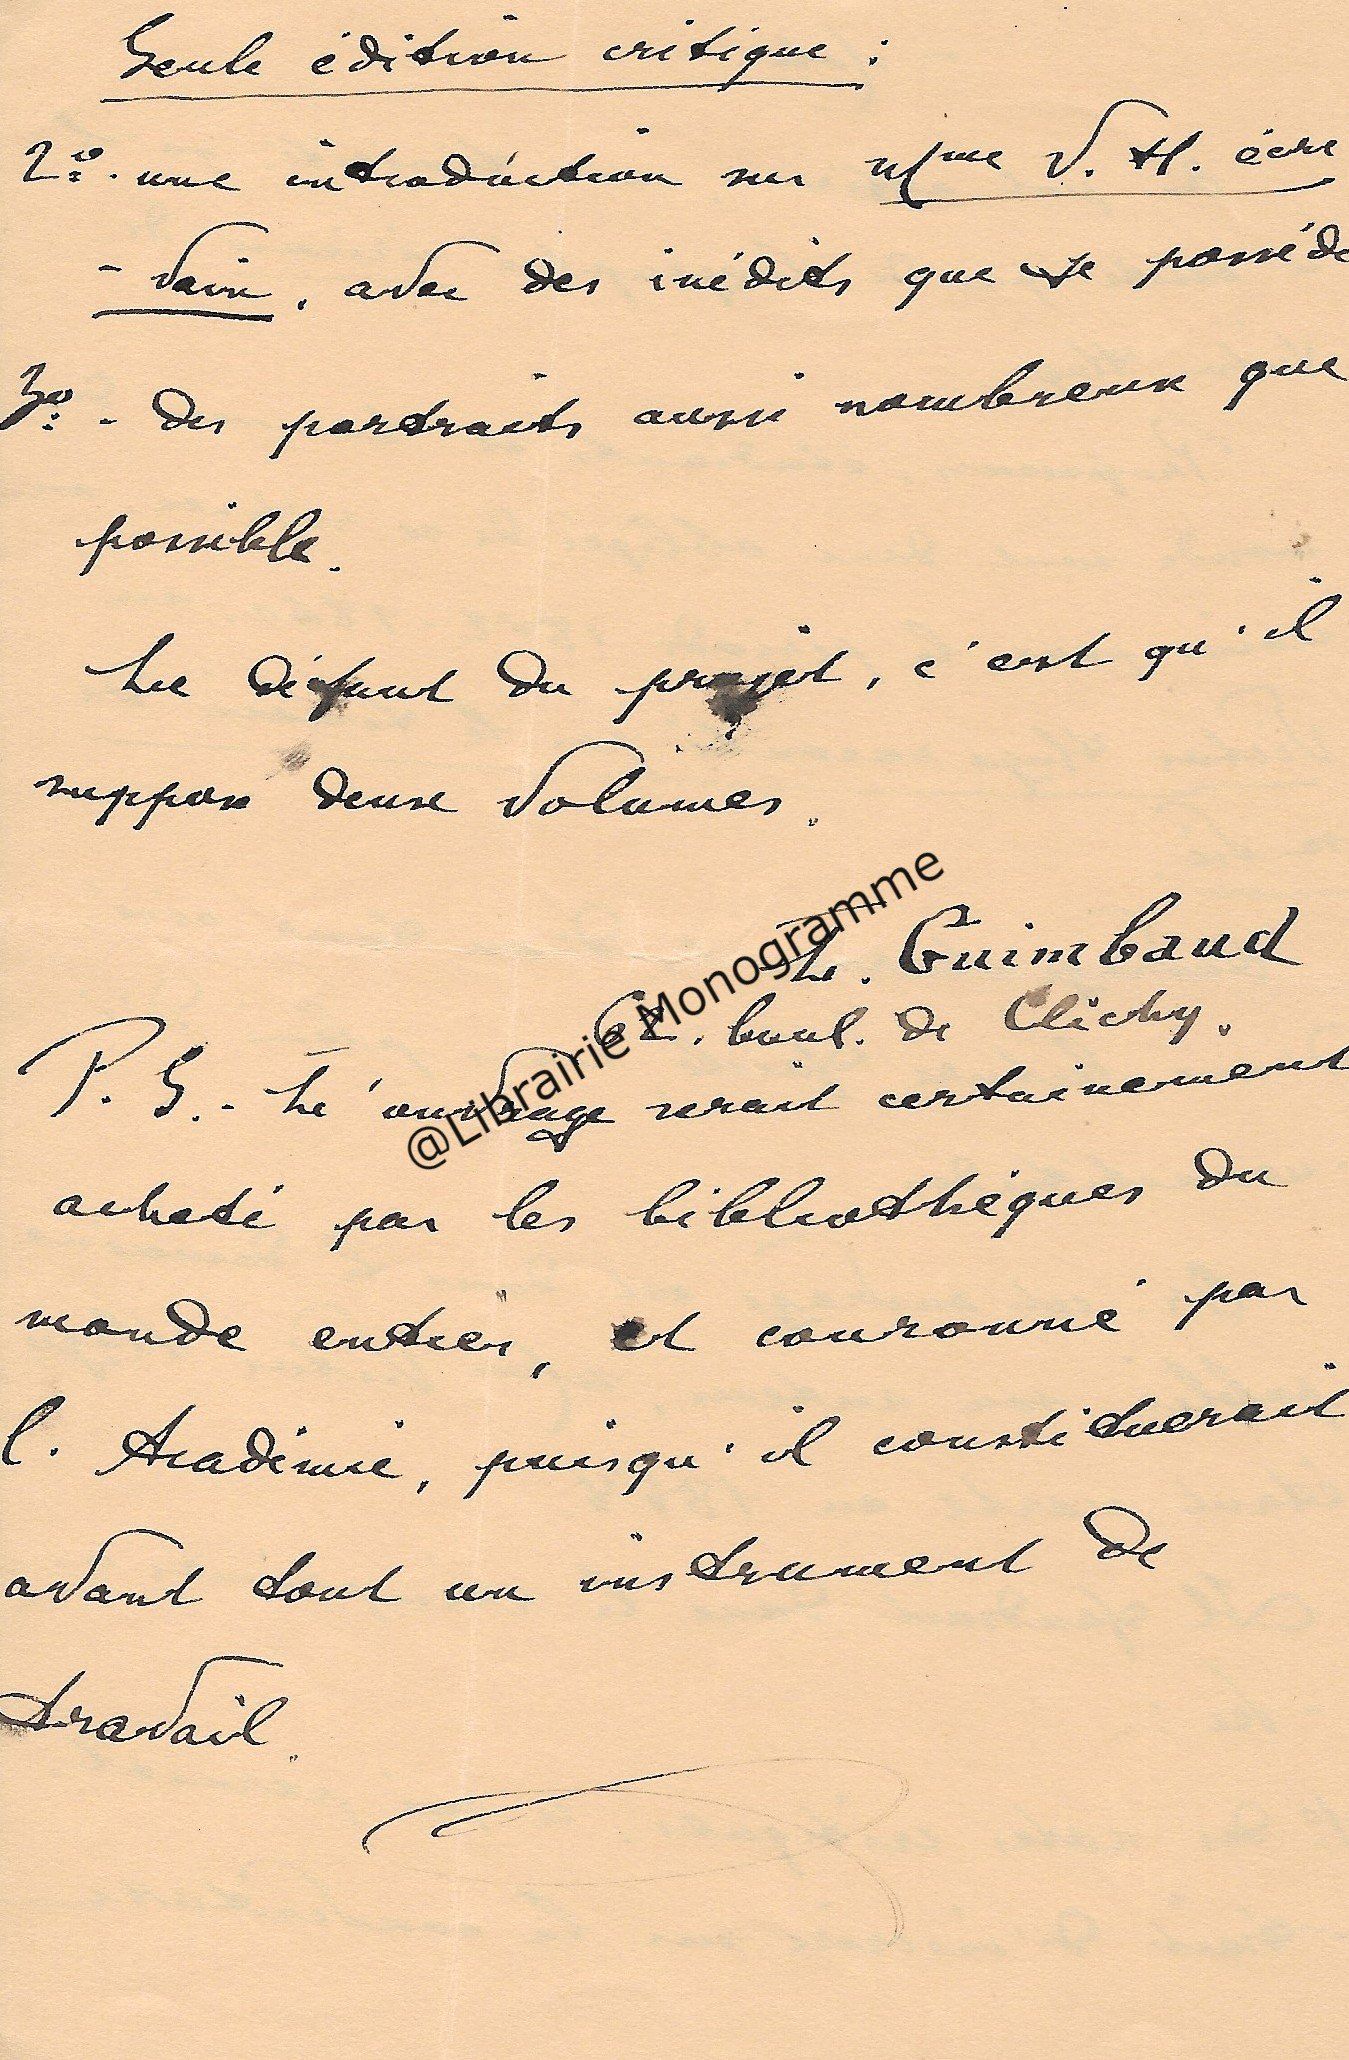 Seule édition critique :
2º. une introduction sur Mme V. H. écri
- vain, avec des inédits que je possède
3º. - des portraits aussi nombreux que
possible.
Le défaut du projet, c'est qu'il
suppose deux volumes.
L. Guimbaud
boul. de Clichy.
P. S. - L'ouvrage serait certainement
acheté par les bibliothèques du
monde entier, et couronné par
l'Académie, puisqu'il constituerait
avant tout un instrument de
travail.
@Librairie Monogramme